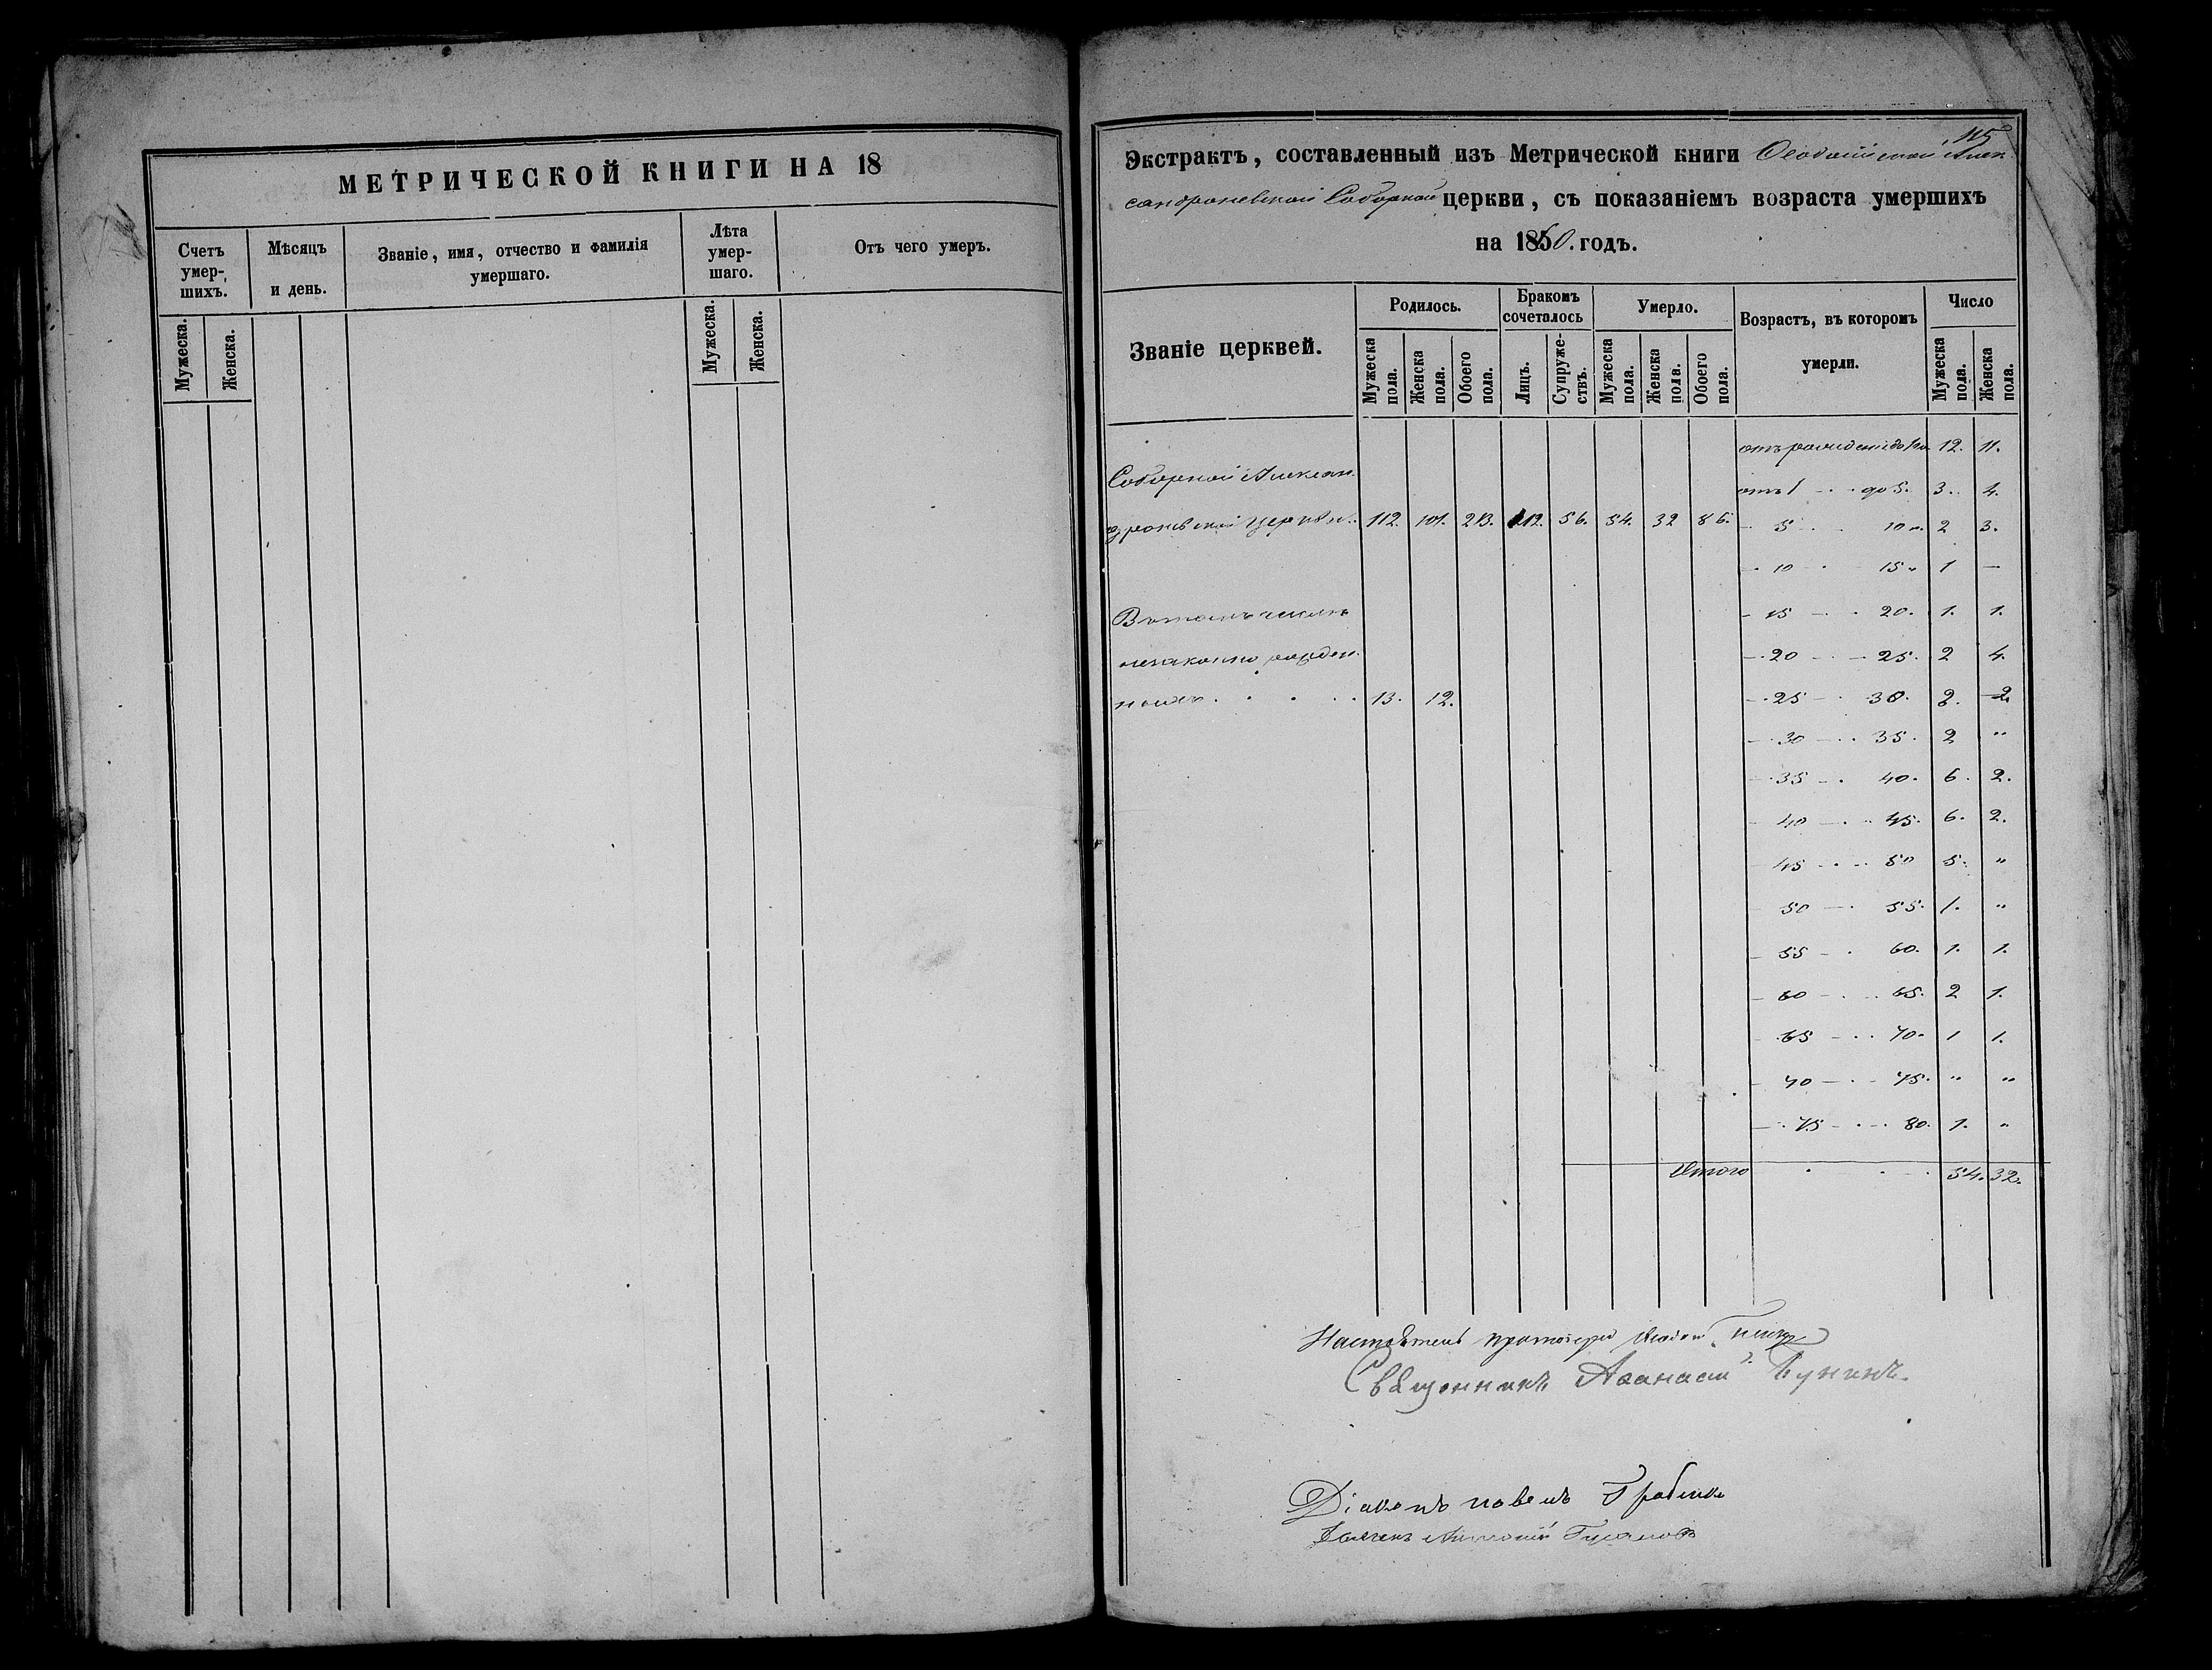 МЕТРИЧЕСКОЙ КНИГИ НА 18
Счетъ умер-шихъ. Мѣсяцъ и день. Званіе, имя, отчество и фамилія умершаго. Лѣта умер-шаго. Отъ чего умеръ.
Мужеска. Женска. Мужеска. Женска.
115
Экстрактъ, составленный изъ Метрической книги Ѳеодосійской Алек
сандроневской Соборной церкви, съ показаніемъ возраста умершихъ
на 1860. годъ.
Званіе церквей. Родилось. Бракомъ сочеталось Умерло. Возрастъ, въ которомъ умерли. Число
Мужеска пола. Женска пола. Обоего пола. Лицъ. Супруже-ствъ. Мужеска пола. Женска пола. Обоего пола. Мужеска пола. Женска пола.
отъ рожденія до 12. 11.
Соборной Алексан
отъ 1 - - до 5. 3. 4.
дроневской церкви. 112. 101. 213. 112. 56. 54. 32 86. - 5 - 10 2 3.
- 10 - 15 1 —
Въ томъ числѣ - 15 - 20. 1. 1.
незаконно рожден
- 20 - 25. 2 4.
ныхъ . . . . 13. 12. - 25 - 30. 2. 2
- 30 - 35. 2 "
- 35 - 40. 6. 2.
- 40 - 45. 6. 2.
- 45 - 50 5. "
- 50 - 55. 1. "
- 55 - 60. 1. 1.
- 60 - 65. 2 1.
- 65 - 70. 1 1.
- 70 - 75. " "
- 75 - 80. 1. "
Итого . . . 54. 32.
Настоятель протоіерей
Священникъ Аѳанасій Бунинъ.
Діаконъ Павелъ